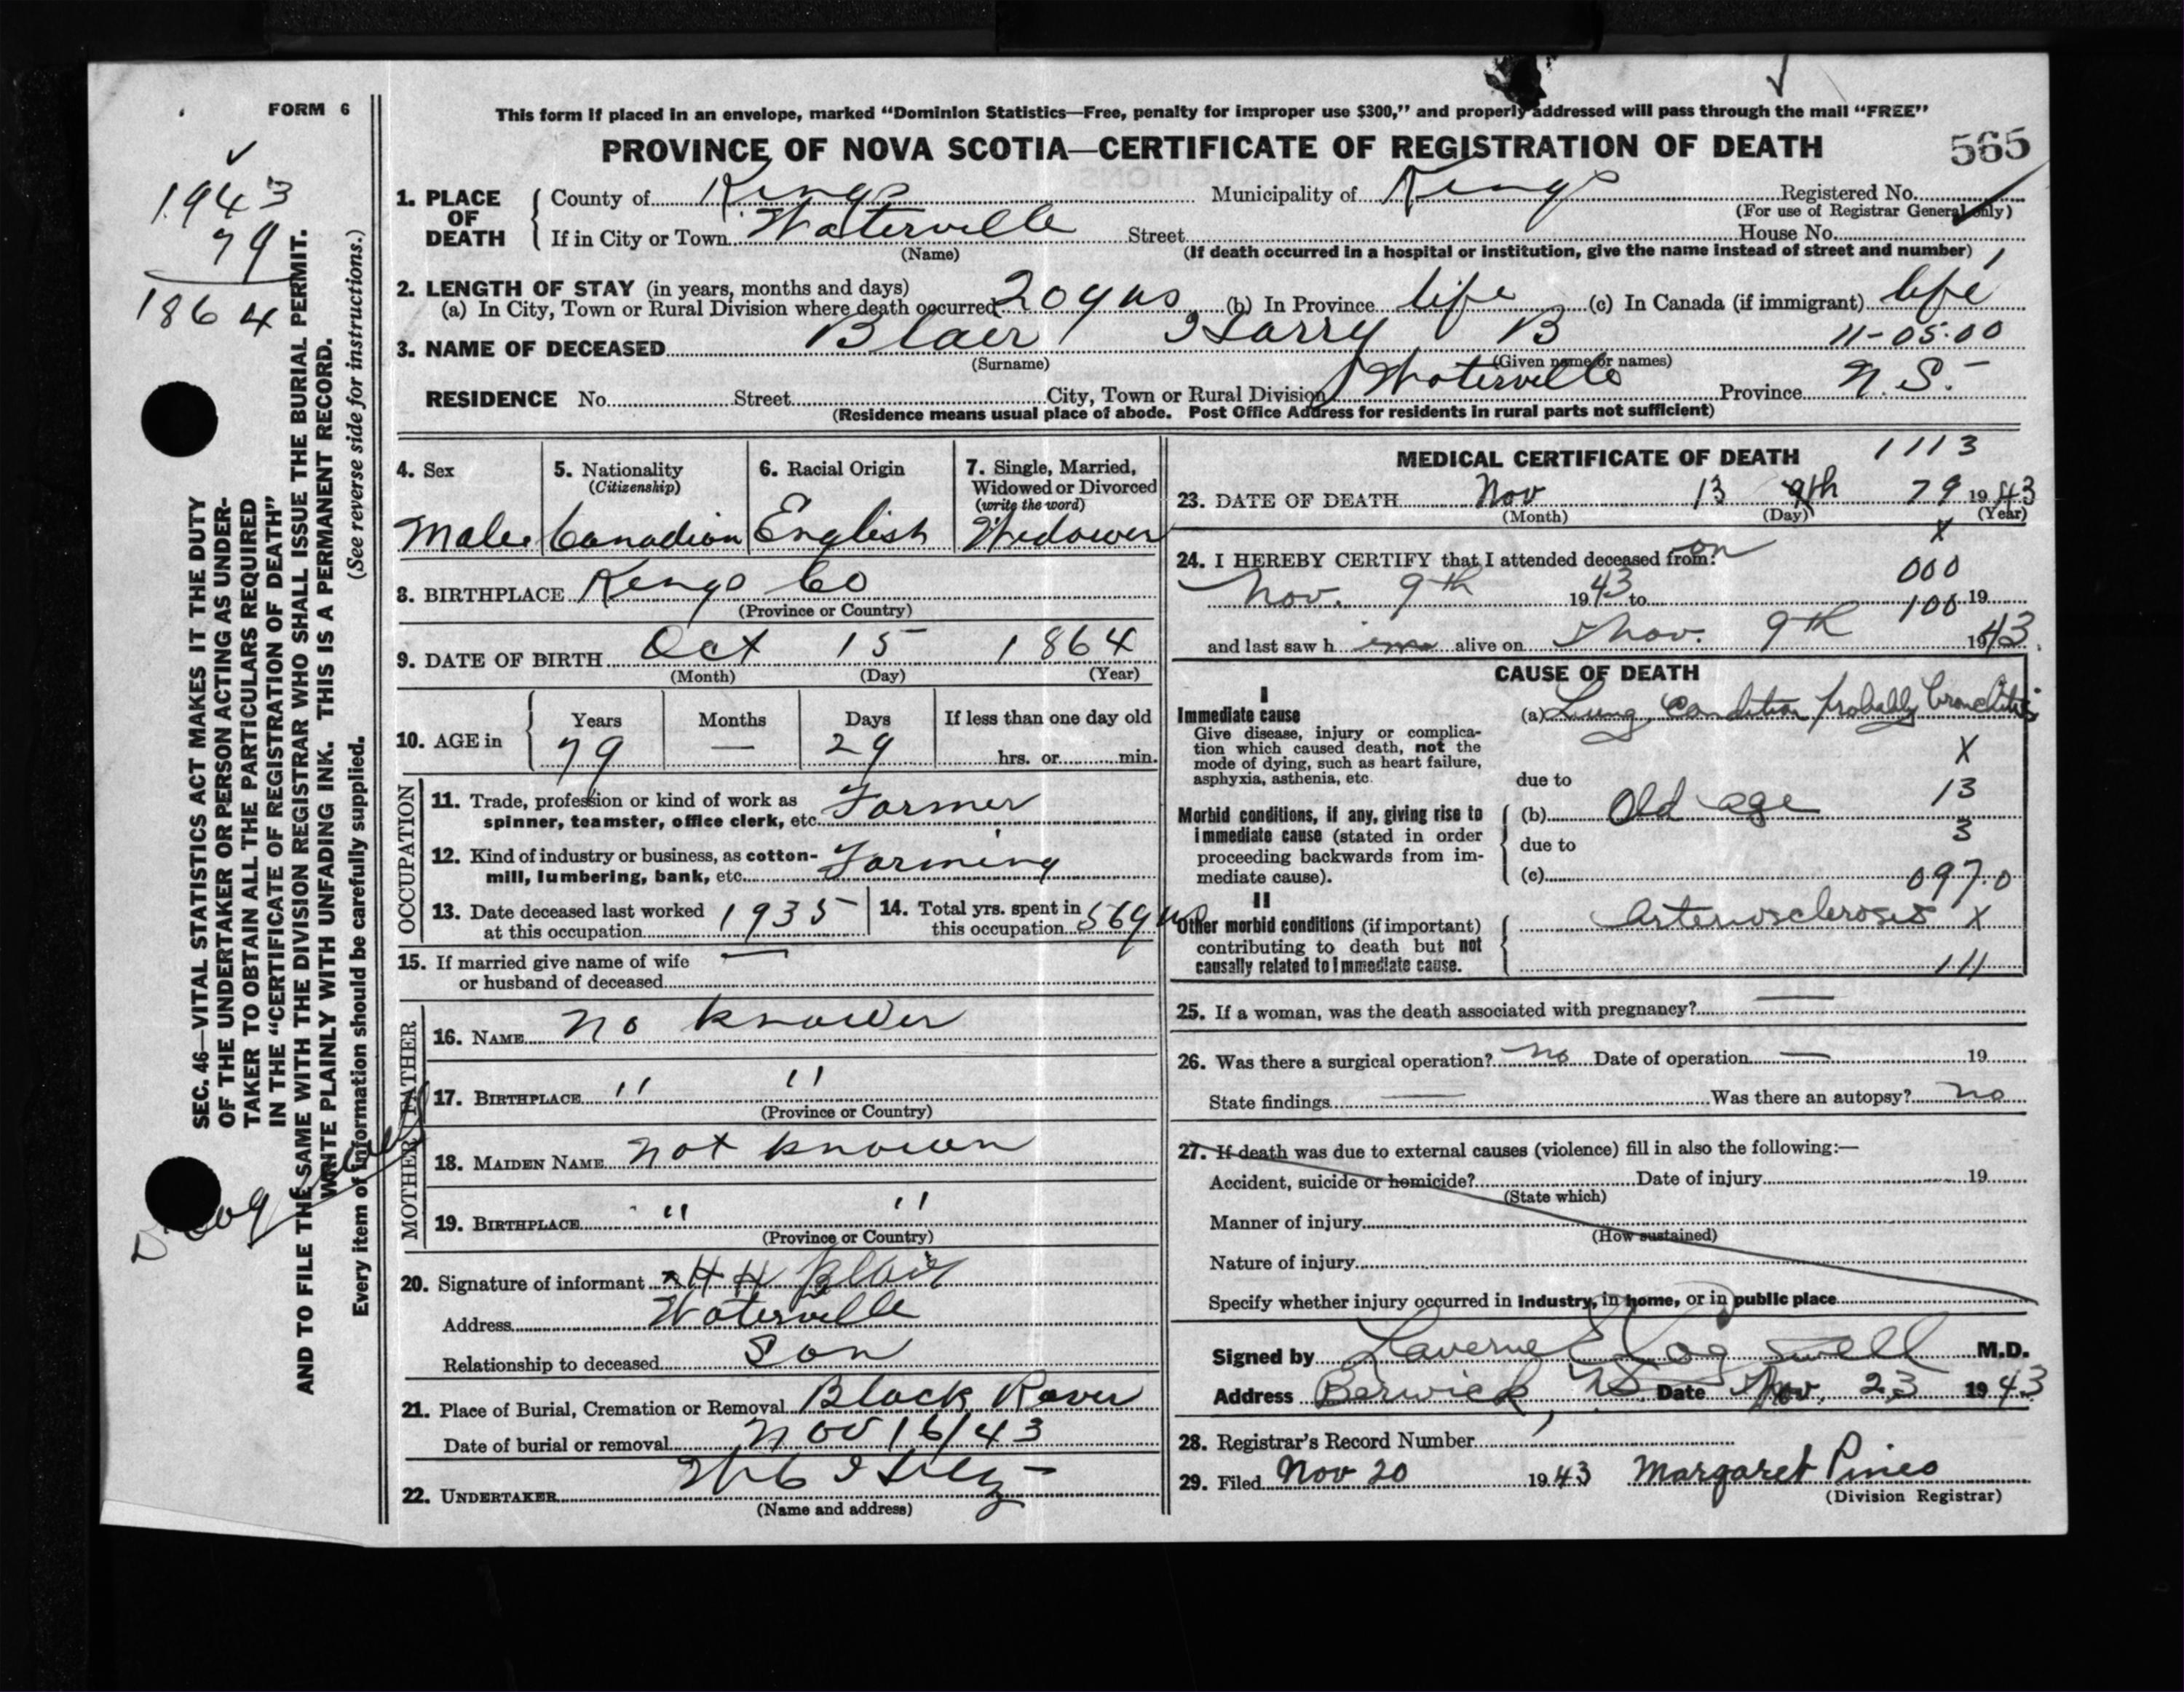 FORM 6
This form if placed in an envelope, marked “Dominion Statistics—Free, penalty for improper use $300,” and properly addressed will pass through the mail “FREE”
PROVINCE OF NOVA SCOTIA—CERTIFICATE OF REGISTRATION OF DEATH
565
1943
79
1864
1. PLACE OF DEATH
County of Kings Municipality of Kings Registered No.
(For use of Registrar General only)
If in City or Town Waterville Street House No.
(Name) (If death occurred in a hospital or institution, give the name instead of street and number)
2. LENGTH OF STAY (in years, months and days)
(a) In City, Town or Rural Division where death occurred 20 yrs (b) In Province life (c) In Canada (if immigrant) life
3. NAME OF DECEASED Blair Harry B 11-05.00
(Surname) (Given name or names)
RESIDENCE No. Street City, Town or Rural Division Waterville Province N.S.
(Residence means usual place of abode. Post Office Address for residents in rural parts not sufficient)
4. Sex
Male
5. Nationality
(Citizenship)
Canadian
6. Racial Origin
English
7. Single, Married,
Widowed or Divorced
(write the word)
Widower
8. BIRTHPLACE Kings Co
(Province or Country)
9. DATE OF BIRTH Oct 15 1864
(Month) (Day) (Year)
10. AGE in
Years Months Days If less than one day old
79 — 29 hrs. or min.
OCCUPATION
11. Trade, profession or kind of work as
spinner, teamster, office clerk, etc. Farmer
12. Kind of industry or business, as cotton-
mill, lumbering, bank, etc. Farming
13. Date deceased last worked
at this occupation 1935
14. Total yrs. spent in
this occupation 56 yrs
15. If married give name of wife
or husband of deceased —
FATHER
16. NAME No known
17. BIRTHPLACE " "
(Province or Country)
MOTHER
18. MAIDEN NAME not known
19. BIRTHPLACE " "
(Province or Country)
20. Signature of informant H H Blair
Address Waterville
Relationship to deceased Son
21. Place of Burial, Cremation or Removal Black River
Date of burial or removal Nov 16/43
22. UNDERTAKER
(Name and address)
MEDICAL CERTIFICATE OF DEATH 1113
23. DATE OF DEATH Nov 13 9th 79 1943
(Month) (Day) (Year)
X
24. I HEREBY CERTIFY that I attended deceased from: on
000
Nov. 9th 1943 to 100 19
and last saw h im alive on Nov. 9th 1943.
CAUSE OF DEATH
I
Immediate cause
Give disease, injury or complica-
tion which caused death, not the
mode of dying, such as heart failure,
asphyxia, asthenia, etc.
(a) Lung Condition Probably bronchitis
X
due to
13
Morbid conditions, if any, giving rise to
immediate cause (stated in order
proceeding backwards from im-
mediate cause).
(b) Old age
3
due to
(c) 097.0
II
Other morbid conditions (if important)
contributing to death but not
causally related to immediate cause.
Arteriosclerosis X
111
25. If a woman, was the death associated with pregnancy? —
26. Was there a surgical operation? No Date of operation — 19
State findings — Was there an autopsy? No
27. If death was due to external causes (violence) fill in also the following:—
Accident, suicide or homicide? Date of injury 19
(State which)
Manner of injury
(How sustained)
Nature of injury
Specify whether injury occurred in industry, in home, or in public place
Signed by Laverne Cogswell M.D.
Address Berwick, NS Date Nov. 23 1943
28. Registrar's Record Number
29. Filed Nov 20 1943 Margaret Pineo
(Division Registrar)
SEC. 46—VITAL STATISTICS ACT MAKES IT THE DUTY
OF THE UNDERTAKER OR PERSON ACTING AS UNDER-
TAKER TO OBTAIN ALL THE PARTICULARS REQUIRED
IN THE “CERTIFICATE OF REGISTRATION OF DEATH”
AND TO FILE THE SAME WITH THE DIVISION REGISTRAR WHO SHALL ISSUE THE BURIAL PERMIT.
WRITE PLAINLY WITH UNFADING INK. THIS IS A PERMANENT RECORD.
Every item of information should be carefully supplied. (See reverse side for instructions.)